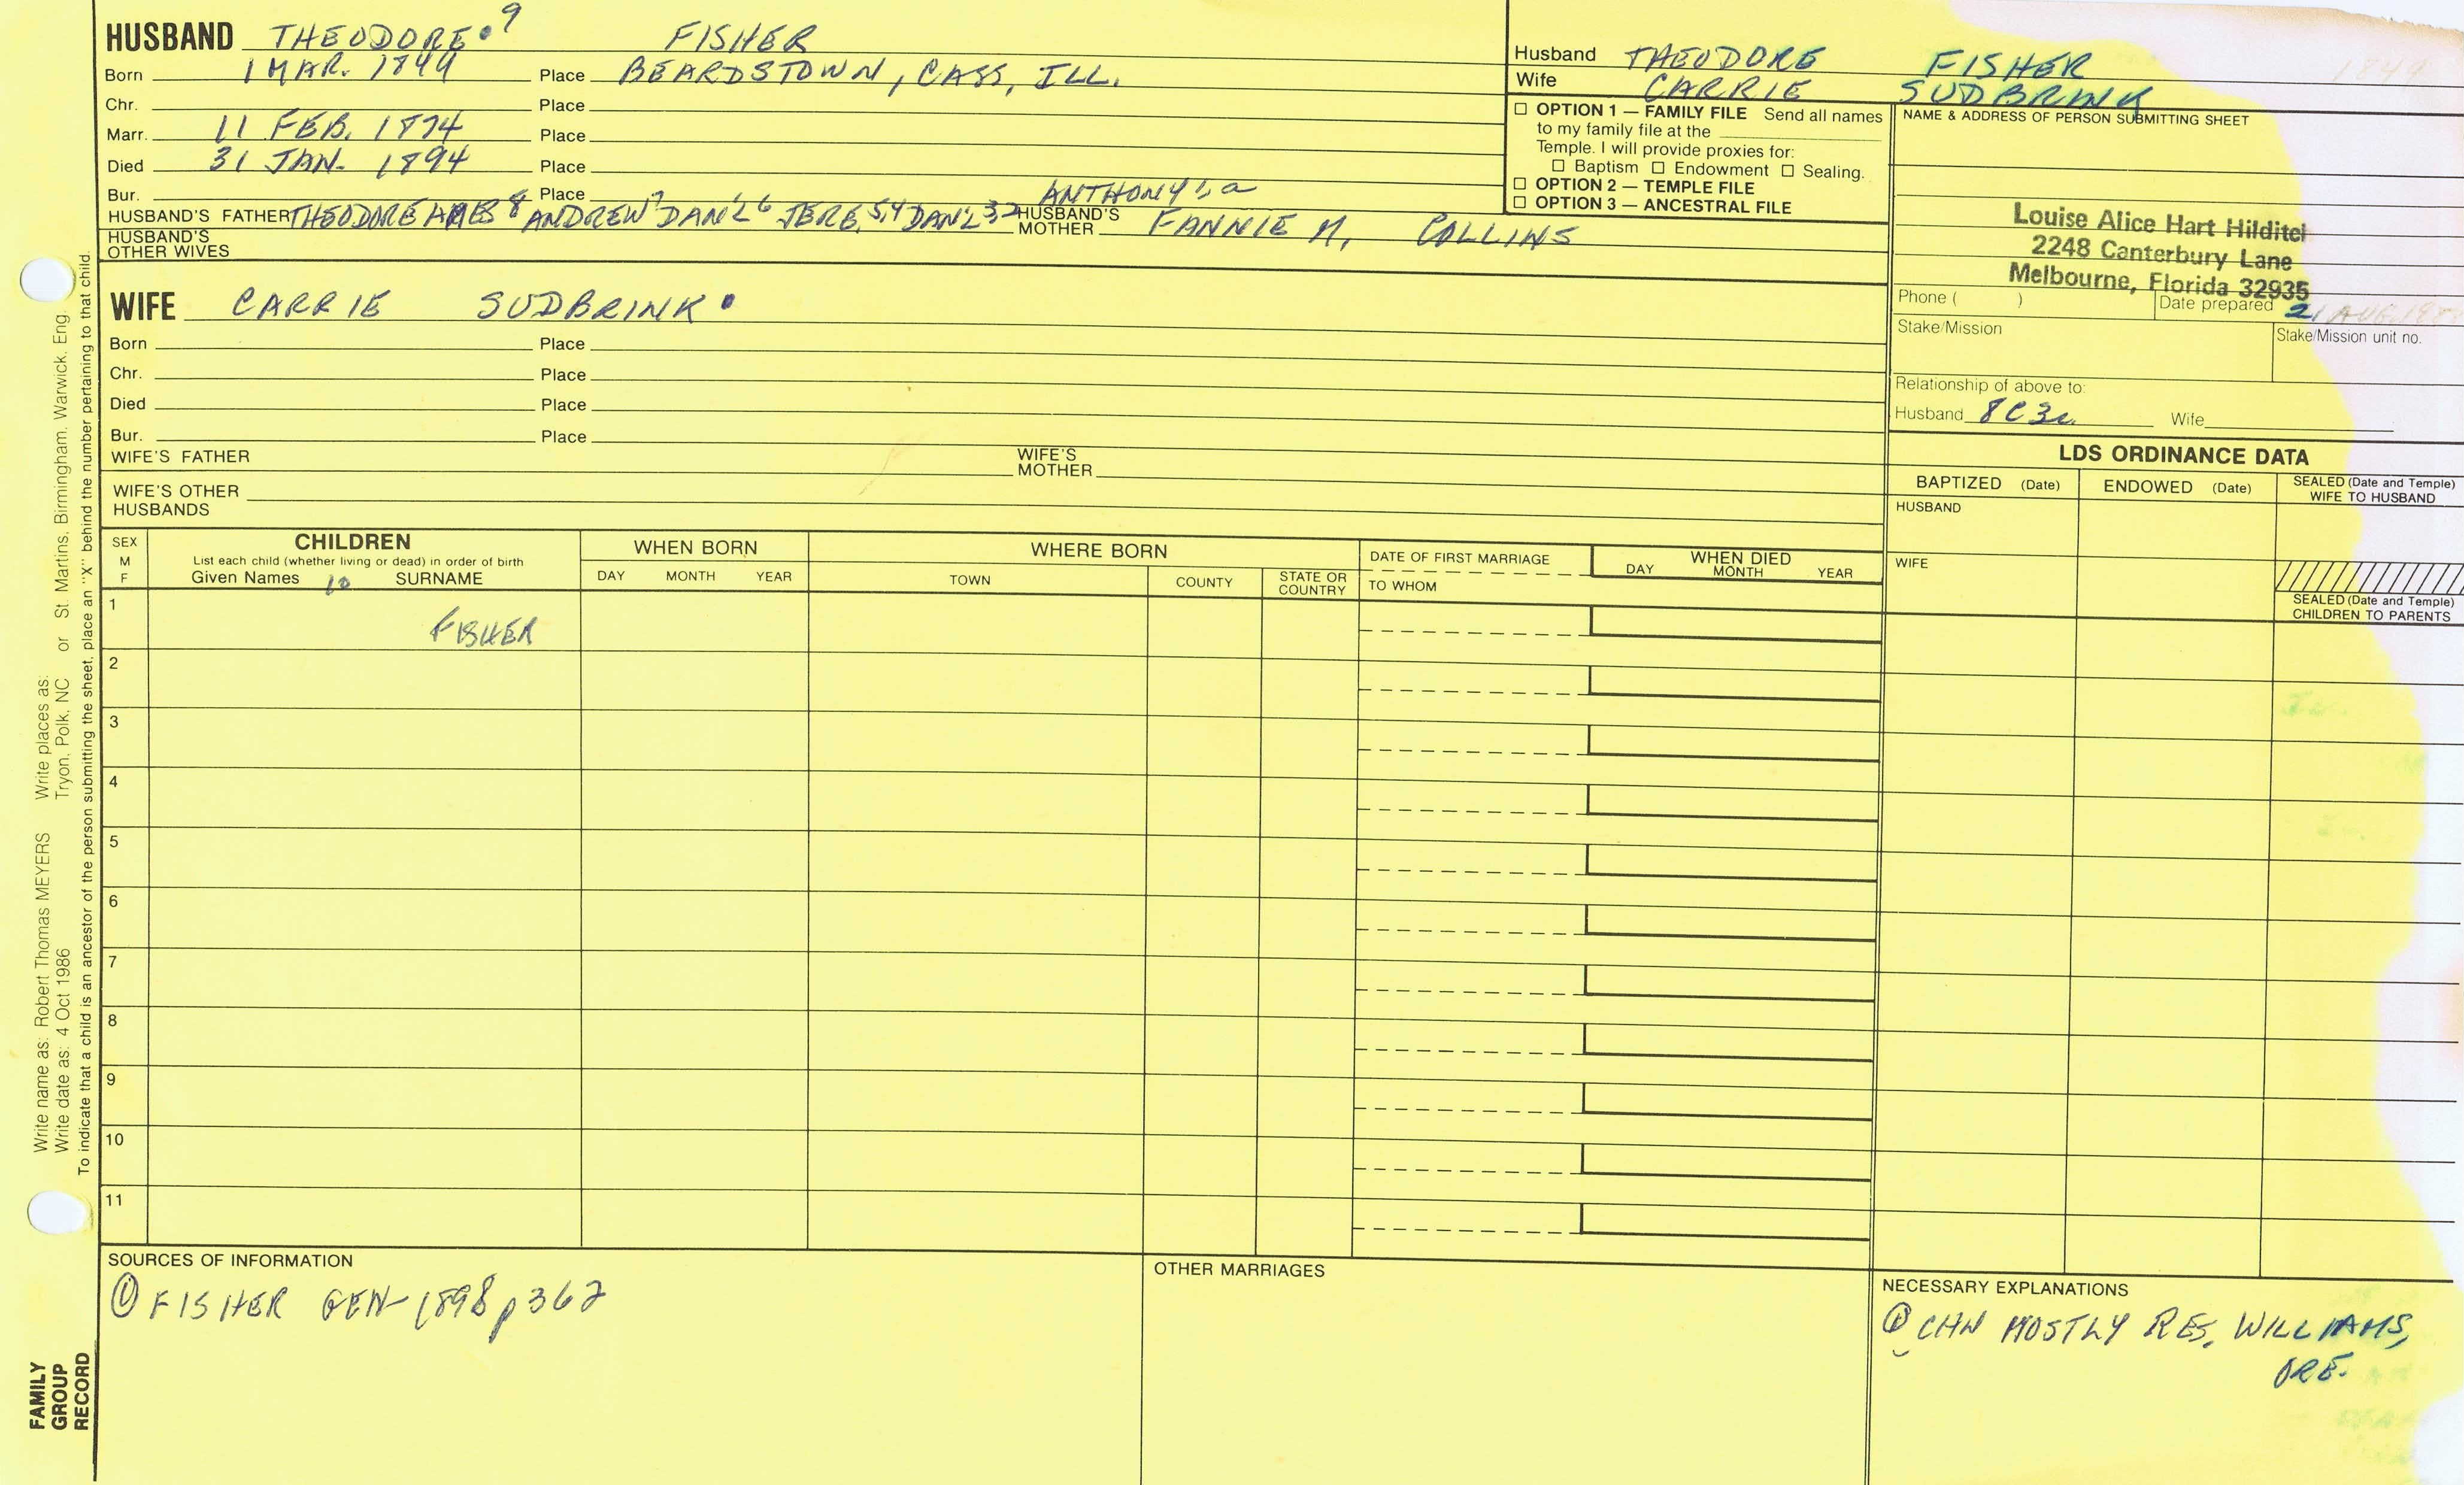 HUSBAND THEODORE 9 FISHER
Born 1 MAR. 1849 Place BEARDSTOWN, CASS, ILL.
Chr. Place
Marr. 11 FEB. 1874 Place
Died 31 JAN. 1894 Place
Bur. Place ANTHONY 1, a
HUSBAND'S FATHER THEODORE AMES 8 ANDREW 7 DAN'L 6 JERE. 5,4 DAN'L 3 2 HUSBAND'S MOTHER FANNIE M. COLLINS
HUSBAND'S OTHER WIVES
Husband THEODORE FISHER 1849
Wife CARRIE SUDBRINK
☐ OPTION 1 — FAMILY FILE Send all names
to my family file at the
Temple. I will provide proxies for:
☐ Baptism ☐ Endowment ☐ Sealing.
☐ OPTION 2 — TEMPLE FILE
☐ OPTION 3 — ANCESTRAL FILE
NAME & ADDRESS OF PERSON SUBMITTING SHEET
Louise Alice Hart Hilditch
2248 Canterbury Lane
Melbourne, Florida 32935
Phone ( ) Date prepared 21 AUG
Stake/Mission Stake/Mission unit no.
Relationship of above to:
Husband 8C3r Wife
WIFE CARRIE SUDBRINK
Born Place
Chr. Place
Died Place
Bur. Place
WIFE'S FATHER WIFE'S MOTHER
WIFE'S OTHER HUSBANDS
LDS ORDINANCE DATA
BAPTIZED (Date) ENDOWED (Date) SEALED (Date and Temple) WIFE TO HUSBAND
HUSBAND
WIFE
SEALED (Date and Temple)
CHILDREN TO PARENTS
SEX M F
CHILDREN
List each child (whether living or dead) in order of birth
Given Names 10 SURNAME
WHEN BORN
DAY MONTH YEAR
WHERE BORN
TOWN COUNTY STATE OR COUNTRY
DATE OF FIRST MARRIAGE
TO WHOM
WHEN DIED
DAY MONTH YEAR
1 FISHER
2
3
4
5
6
7
8
9
10
11
SOURCES OF INFORMATION
① FISHER GEN-1898 p 362
OTHER MARRIAGES
NECESSARY EXPLANATIONS
① CHN MOSTLY RES. WILLIAMS,
ORE.
Write name as: Robert Thomas MEYERS Write places as: St. Martins, Birmingham, Warwick, Eng.
Write date as: 4 Oct 1986 Tryon, Polk, NC or
To indicate that a child is an ancestor of the person submitting the sheet, place an "X" behind the number pertaining to that child.
FAMILY
GROUP
RECORD